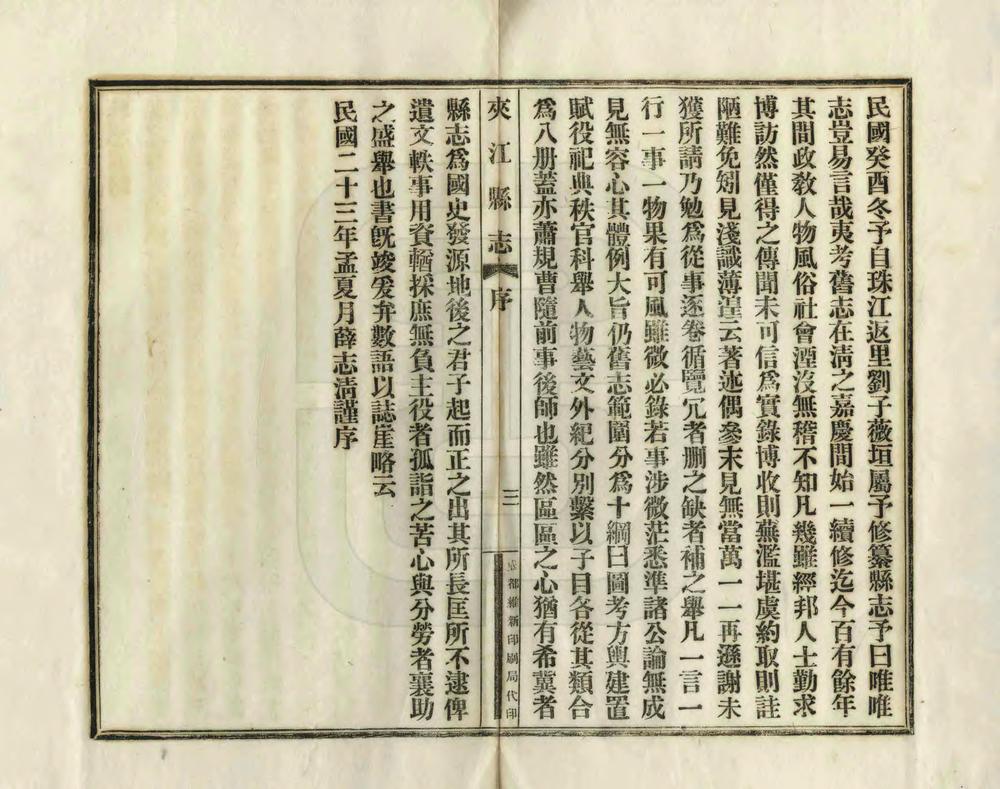 民國癸酉冬予自珠江返里劉子薇垣屬予修纂縣志予曰唯唯
志豈易言哉夷考舊志在淸之嘉慶間始一續修迄今百有餘年
其間政敎人物風俗社會湮沒無稽不知凡幾雖經邦人士勤求
博訪然僅得之傳聞未可信爲實錄博收則蕪濫堪虞約取則詿
陋難免矧見淺識薄遑云著述偶參末見無當萬一一再遜謝未
獲所請乃勉爲從事逐卷循覽冗者删之缺者補之舉凡一言一
行一事一物果有可風雖微必錄若事涉微茫悉準諸公論無成
見無容心其體例大旨仍舊志範圍分爲十綱曰圖考方輿建置
賦役祀典秩官科舉人物藝文外紀分別繫以子目各從其類合
爲八册蓋亦蕭規曹隨前事後師也雖然區區之心猶有希冀者
夾江縣志 序 三 成都維新印刷局代印
縣志爲國史發源地後之君子起而正之出其所長匡所不逮俾
遺文軼事用資輶採庶無負主役者孤詣之苦心與分勞者襄助
之盛舉也書旣竣爰弁數語以誌崖略云
民國二十三年孟夏月薛志淸謹序